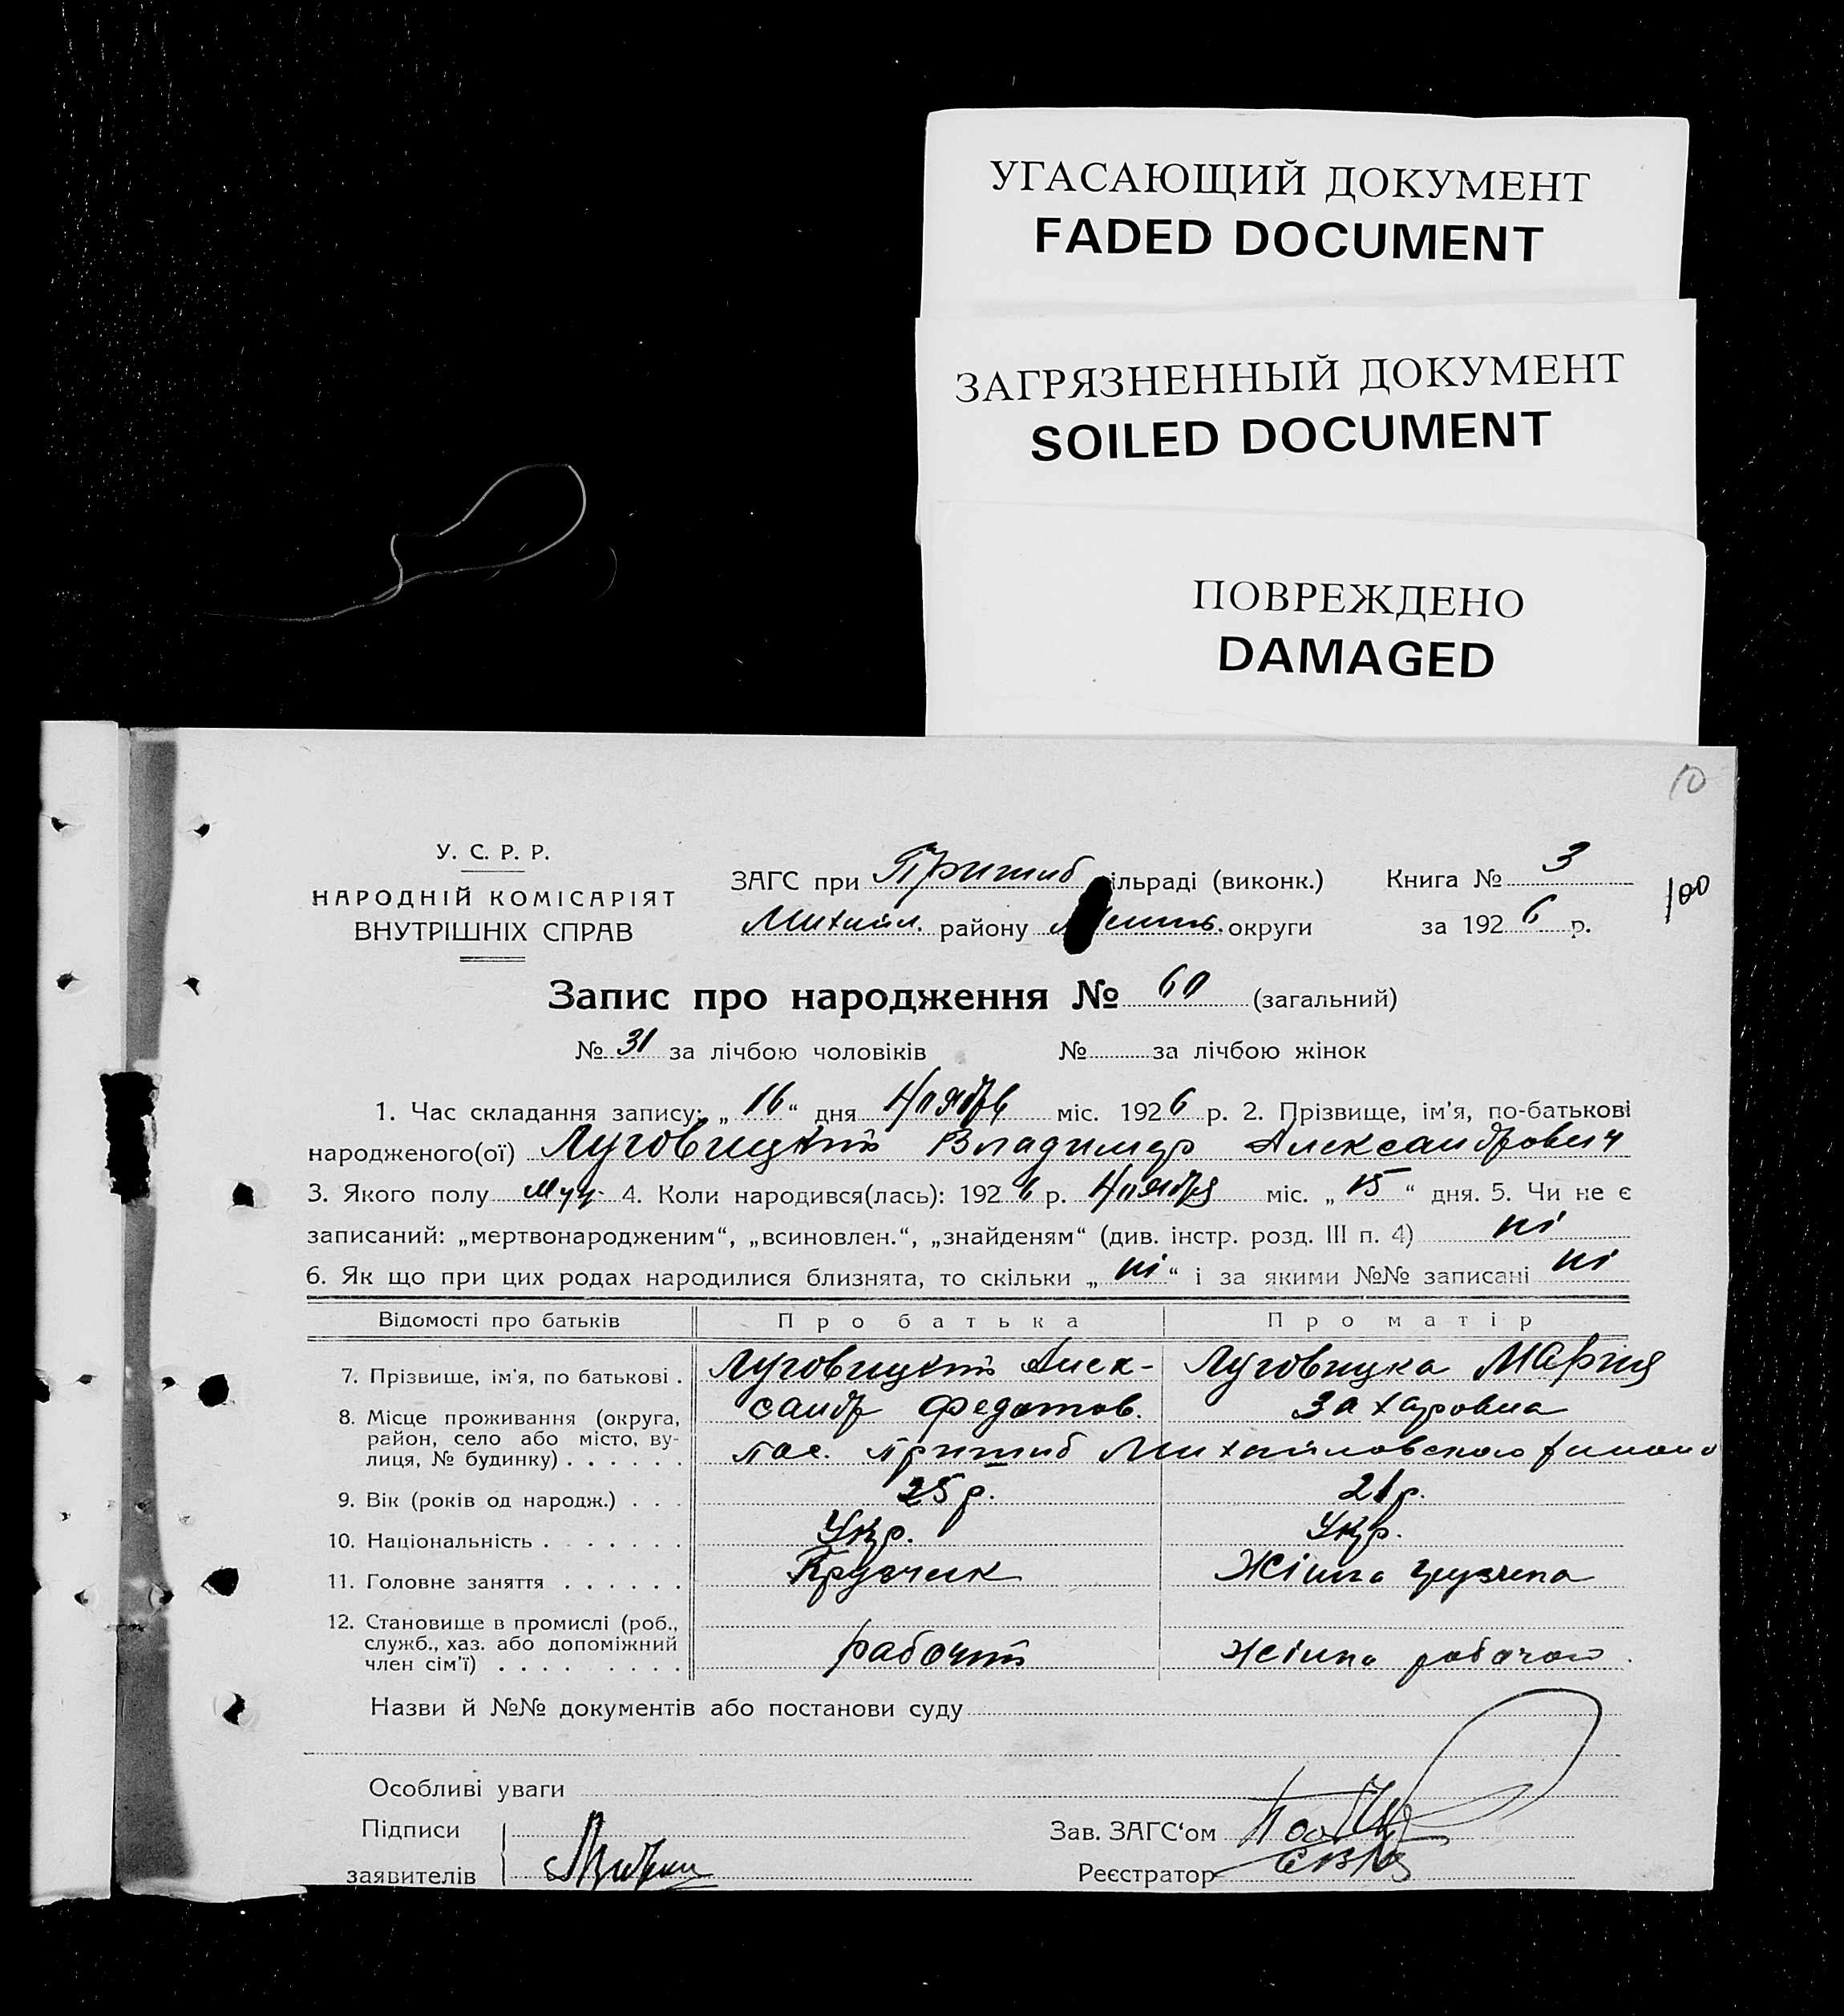 УГАСАЮЩИЙ ДОКУМЕНТ
FADED DOCUMENT
ЗАГРЯЗНЕННЫЙ ДОКУМЕНТ
SOILED DOCUMENT
ПОВРЕЖДЕНО
DAMAGED
10
У. С. Р. Р.
НАРОДНІЙ КОМІСАРІЯТ
ВНУТРІШНІХ СПРАВ
ЗАГС при Пришиб ільраді (виконк.) Книга № 3
100
Михайл. району округи за 1926 р.
Запис про народження № 60 (загальний)
№ 31 за лічбою чоловіків № за лічбою жінок
1. Час складання запису: „16“ дня Ноября міс. 1926 р. 2. Прізвище, ім'я, по-батькові
народженого(ої) Луговицкий Владимир Александрович
3. Якого полу муж. 4. Коли народився(лась): 1926 р. Ноября міс. „15“ дня. 5. Чи не є
записаний: „мертвонародженим“, „всиновлен.“, „знайденям“ (див. інстр. розд. III п. 4) ні
6. Як що при цих родах народилися близнята, то скільки „ні“ і за якими №№ записані ні
Відомості про батьків Про батька Про матір
7. Прізвище, ім'я, по батькові . Луговицкий Алек- Луговицка Мария
сандр Федотов. Захаровна
8. Місце проживання (округа, район, село або місто, ву-
лиця, № будинку) . . . . . . пос. Пришиб Михайловского
9. Вік (років од народж.) . . . 25 р. 21 р.
10. Національність . . . . . . . Укр. Укр.
11. Головне заняття . . . . . . Грузчик Жінка грузчика
12. Становище в промислі (роб.,
служб., хаз. або допоміжний
член сім'ї) . . . . . . . . . рабочий жінка рабочого
Назви й №№ документів або постанови суду
Особливі уваги
Підписи
заявителів
Зав. ЗАГС'ом
Реєстратор